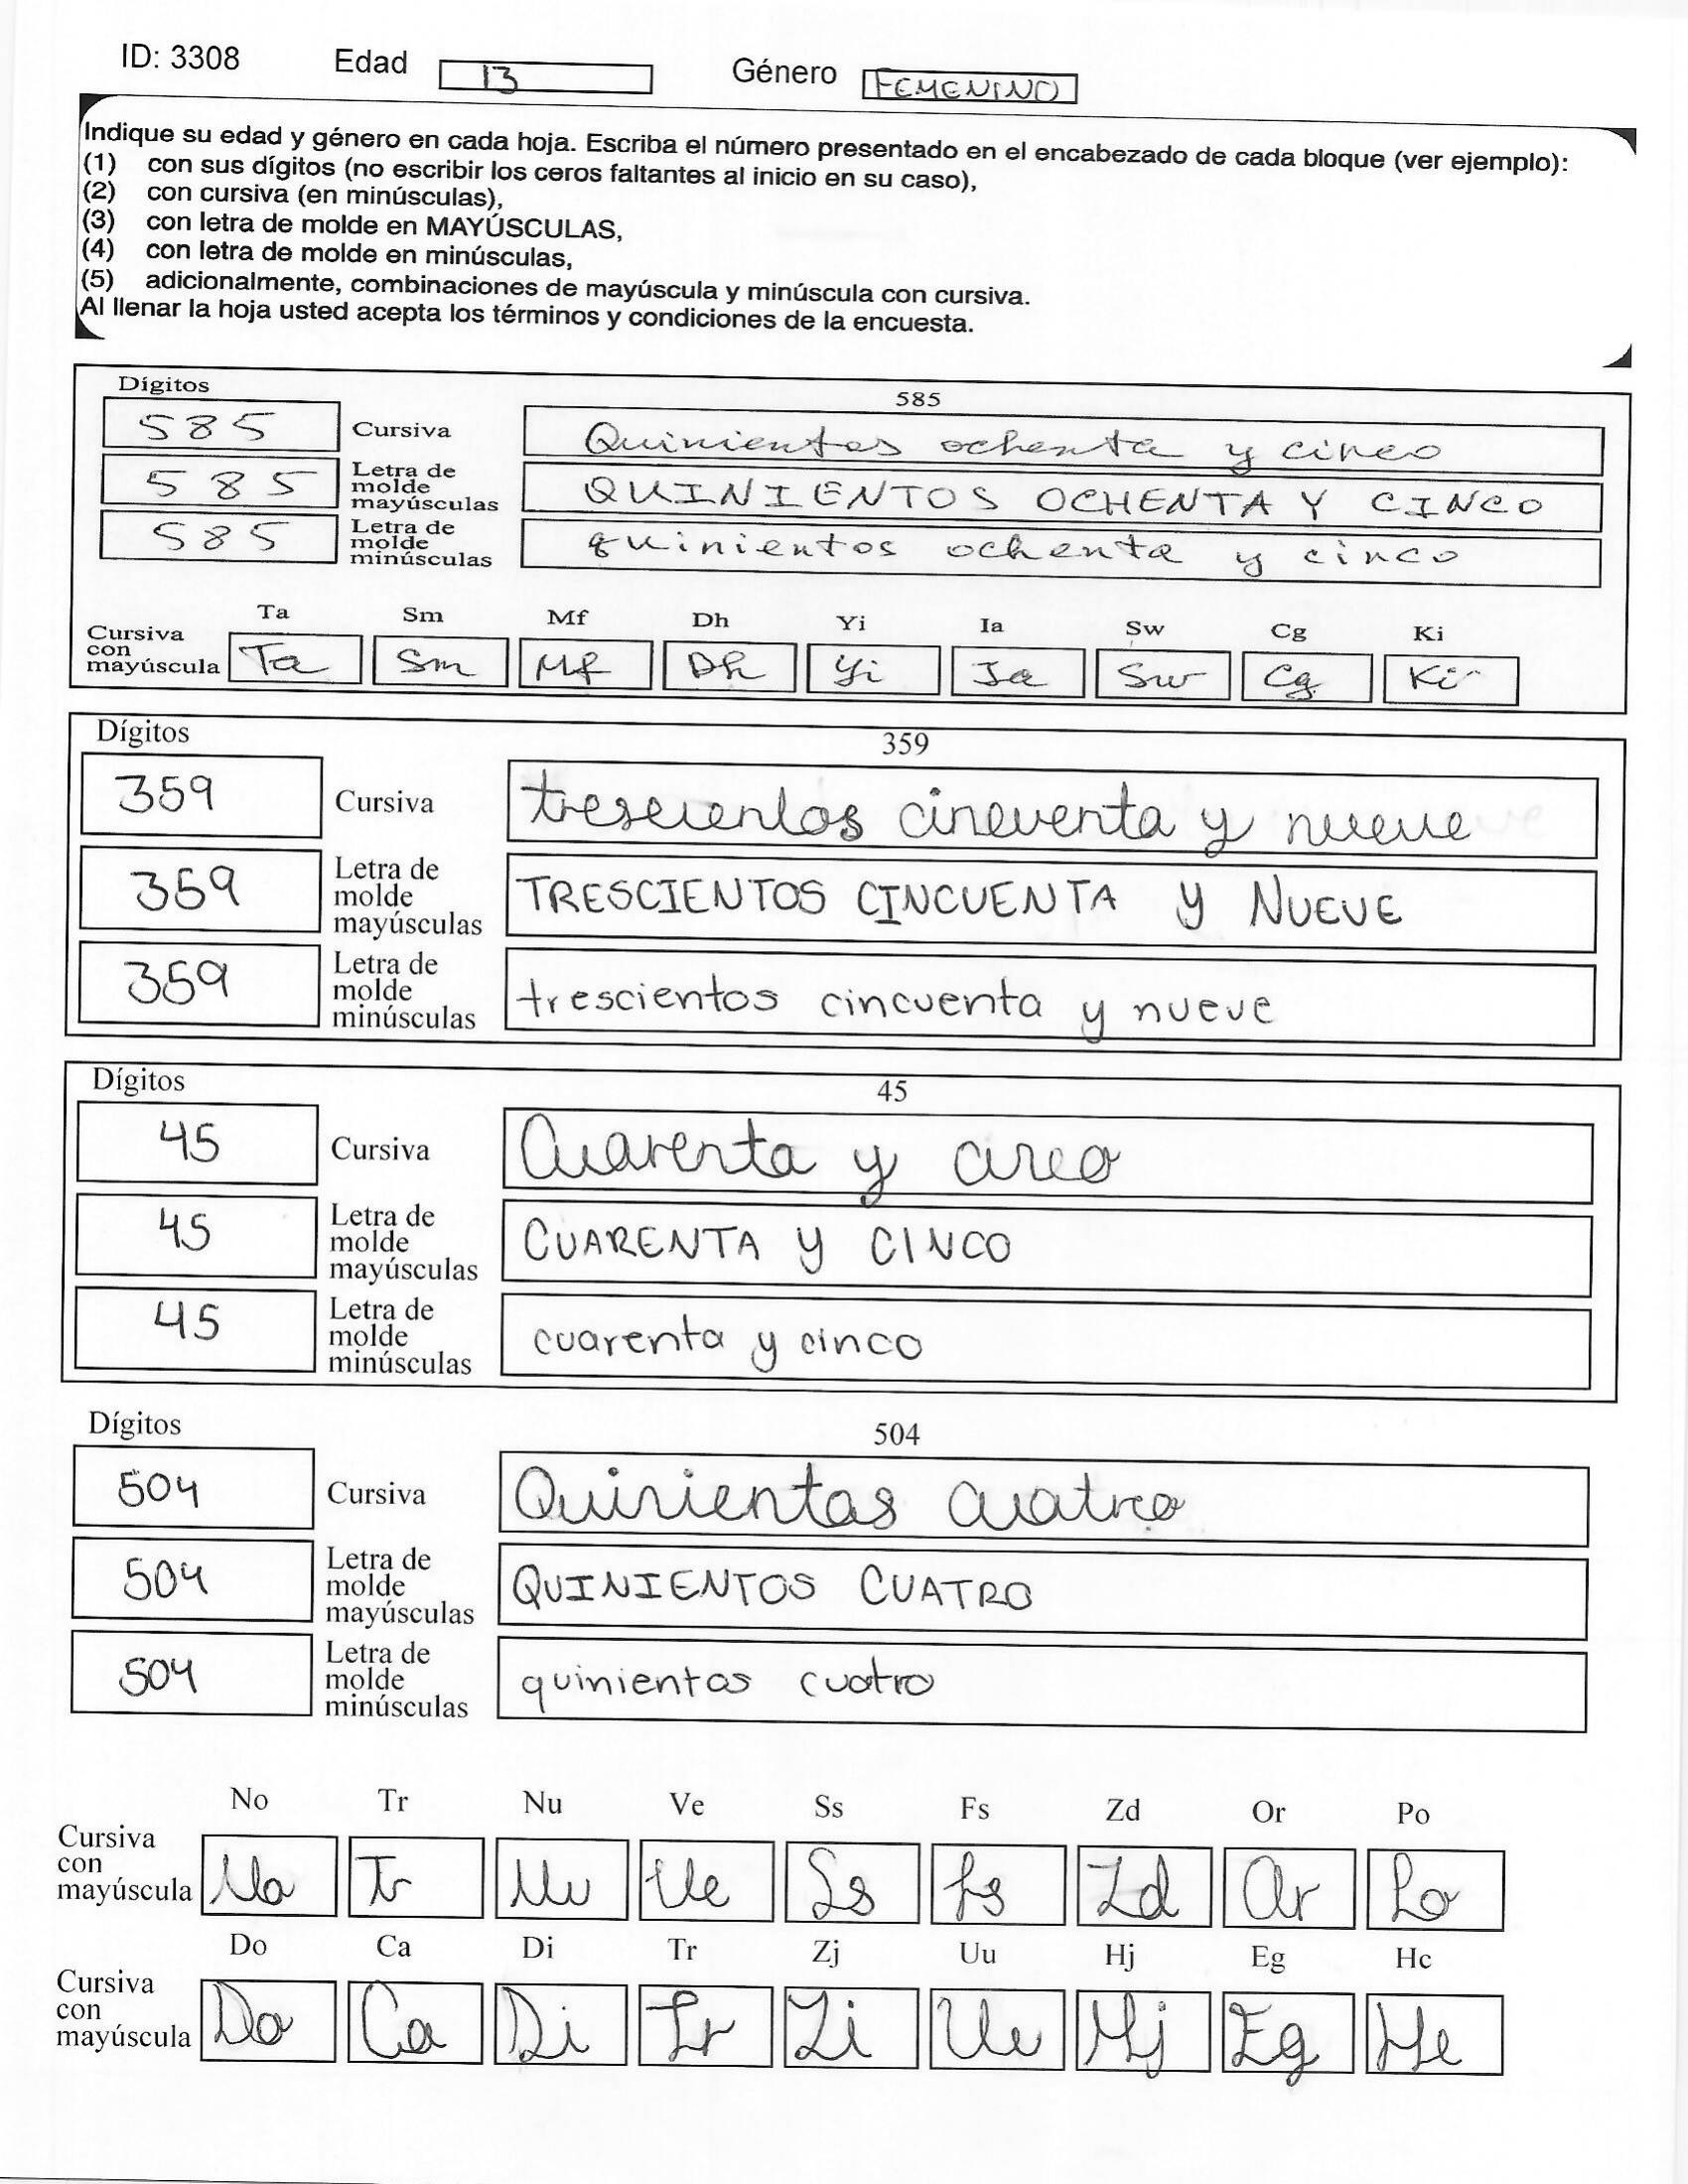 ID: 3308 Edad 13 Género FEMENINO
Indique su edad y género en cada hoja. Escriba el número presentado en el encabezado de cada bloque (ver ejemplo):
(1) con sus dígitos (no escribir los ceros faltantes al inicio en su caso),
(2) con cursiva (en minúsculas),
(3) con letra de molde en MAYÚSCULAS,
(4) con letra de molde en minúsculas,
(5) adicionalmente, combinaciones de mayúscula y minúscula con cursiva.
Al llenar la hoja usted acepta los términos y condiciones de la encuesta.
Dígitos 585
585 Cursiva Quinientos ochenta y cinco
585 Letra de molde mayúsculas QUINIENTOS OCHENTA Y CINCO
585 Letra de molde minúsculas quinientos ochenta y cinco
Ta Sm Mf Dh Yi Ia Sw Cg Ki
Cursiva con mayúscula Ta Sm Mf Dh Yi Ia Sw Cg Ki
Dígitos 359
359 Cursiva trescientos cincuenta y nueve
359 Letra de molde mayúsculas TRESCIENTOS CINCUENTA Y NUEVE
359 Letra de molde minúsculas trescientos cincuenta y nueve
Dígitos 45
45 Cursiva Cuarenta y cinco
45 Letra de molde mayúsculas CUARENTA Y CINCO
45 Letra de molde minúsculas cuarenta y cinco
Dígitos 504
504 Cursiva Quinientos cuatro
504 Letra de molde mayúsculas QUINIENTOS CUATRO
504 Letra de molde minúsculas quinientos cuatro
No Tr Nu Ve Ss Fs Zd Or Po
Cursiva con mayúscula No Tr Nu Ve Ss Fs Zd Or Po
Do Ca Di Tr Zj Uu Hj Eg Hc
Cursiva con mayúscula Do Ca Di Tr Zi Uu Hj Eg He